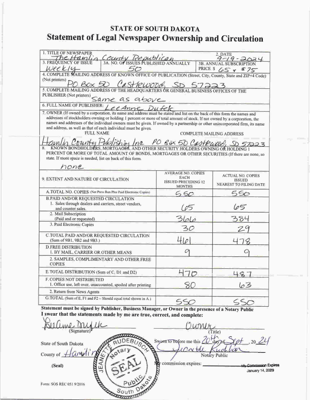 STATE OF SOUTH DAKOTA
Statement of Legal Newspaper Ownership and Circulation
1. TITLE OF NEWSPAPER
The Hamlin County Republican
2. DATE
9-19-2024
3. FREQUENCY OF ISSUE
Weekly
3A. NO. OF ISSUES PUBLISHED ANNUALLY
50
3B. ANNUAL SUBSCRIPTION
PRICE $
4. COMPLETE MAILING ADDRESS OF KNOWN OFFICE OF PUBLICATION (Street, City, County, State and ZIP+4 Code)
(Not printers)
PO Box 50 Castlewood SD 57223
5. COMPLETE MAILING ADDRESS OF THE HEADQUARTERS OR GENERAL BUSINESS OFFICES OF THE
PUBLISHER (Not printers)
Same as above
6. FULL NAME OF PUBLISHER:
LeeAnne Dufek
7. OWNER (If owned by a corporation, its name and address must be stated and list on the back of this form the names and
addresses of stockholders owning or holding 1 percent or more of total amount of stock. If not owned by a corporation, the
names and addresses of the individual owners must be given. If owned by a partnership or other unincorporated firm, its name
and address, as well as that of each individual must be given.
FULL NAME
COMPLETE MAILING ADDRESS
Hamlin County Publishing Inc. PO Box 50 Castlewood SD 57223
KNOWN BONDHOLDERS, MORTGAGEE, AND OTHER SECURITY HOLDERS OWNING OR HOLDING 1
PERCENT OR MORE OF TOTAL AMOUNT OF BONDS, MORTGAGES OR OTHER SECURITIES (If there are none, so
state. If more space is needed, list on back of this form)
none
9. EXTENT AND NATURE OF CIRCULATION
AVERAGE NO. COPIES
EACH
ISSUED PRECEDING 12
MONTHS
ACTUAL NO. COPIES
ISSUED
NEAREST TO FILING DATE
A. TOTAL NO. COPIES (Net Press Run Plus Paid Electronic Copies)
550 550
B. PAID AND/OR REQUESTED CIRCULATION
1. Sales through dealers and carriers, street vendors,
and counter sales.
65 65
2. Mail Subscription
(Paid and or requested)
366 384
3. Paid Electronic Copies
30 29
C. TOTAL PAID AND/OR REQUESTED CIRCULATION
(Sum of 9B1, 9B2 and 9B3.)
461 478
D. FREE DISTRIBUTION
1. BY MAIL, CARRIER OR OTHER MEANS
9 9
2. SAMPLES, COMPLIMENTARY AND OTHER FREE
COPIES
E. TOTAL DISTRIBUTION (Sum of C, D1 and D2)
470 487
F. COPIES NOT DISTRIBUTED
1. Office use, left over, unaccounted, spoiled after printing
80 63
2. Return from News Agents
G. TOTAL (Sum of E, F1 and F2 - Should equal total shown in A.)
550 550
Statement must be signed by Publisher, Business Manager, or Owner in the presence of a Notary Public
I swear that the statements made by me are true, correct, and complete:
(Signature)
Owner
(Title)
State of South Dakota
County of Hamlin
(Seal)
JEANETTE RUDEBUSCH
Notary
SEAL
Public
South Dakota
Sworn to before me this 20th Sept. 20 24
Notary Public
My commission expires
My Commission Expires